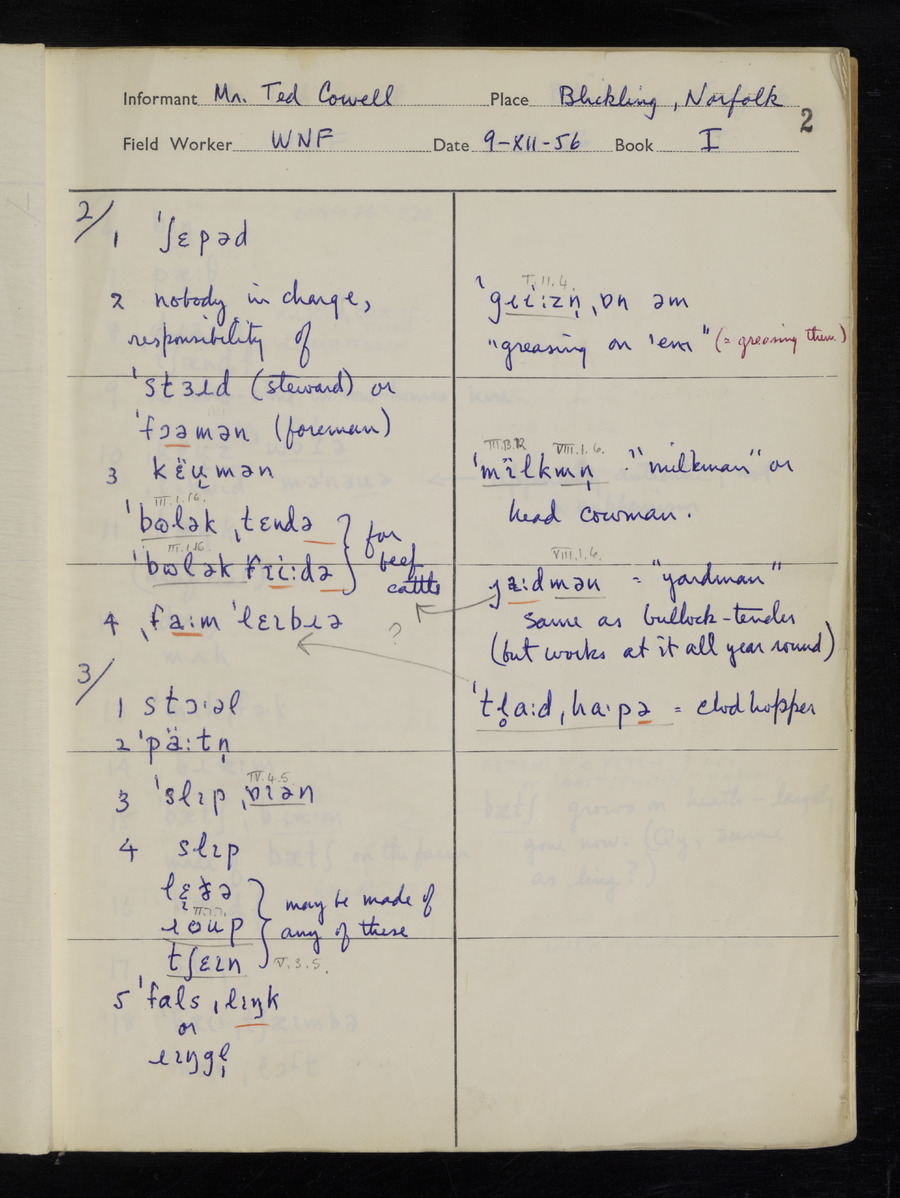 Informant Mr. Ted Cowell Place Blickling, Norfolk
2
Field Worker WNF Date 9-XII-56 Book I
2/
1 ˈʃɛpəd
2 nobody in charge,
responsibility of
ˈstɜɪd (steward) or
ˈfɔəmən (foreman)
3 këʉmən
III.1.16.
ˈbɷlək ˌtɛndə
III.1.16
ˈbɷlək fɪi:də
for
beef
cattle
4 ˌfa:m ˈlɛɪbɪə
?
3/
1 stɔ·əl
2 ˈpä:tn̩
IV.4.5
3 ˈslɪp ˌɒɪən
4 slɪp
lɛðə
ɹoup
tʃɛɪn
may be made of
any of these
V.3.5.
5 ˈfals ˌlɪŋk
or
ɹɪŋgl̩
T.11.4
ˈgɹi:zn̩ ˌɒn əm
"greasing on 'em" (= greasing them.)
III.B.12 VIII.1.6.
ˈmïlkmn̩ : "milkman" or
head cowman.
VIII.1.6.
ja:dmən = "yardman"
same as bullock-tender
(but works at it all year round)
ˈtl̥a:d ˌha·pə = clodhopper